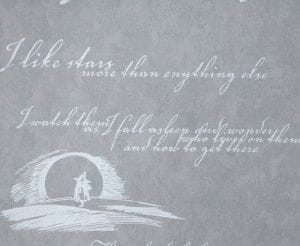 I like stars
more than enything else
I watch them
as I fall asleep and wonder
who lives on them
and how to get there